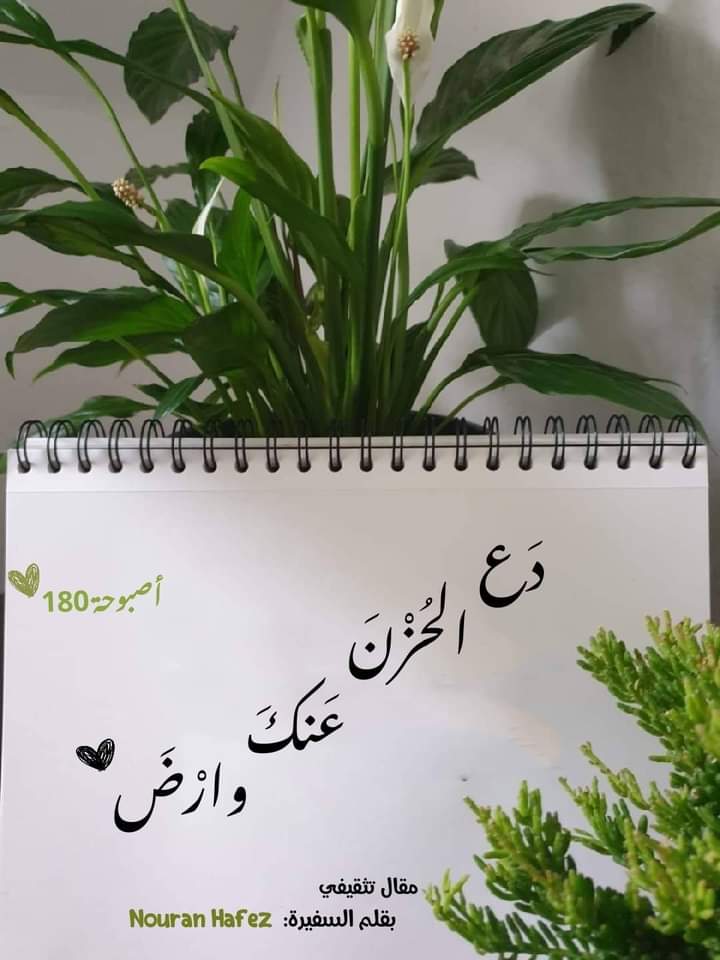 دَع
الحُزْنَ
عَنكَ
وارْضَ
أصبوحة180
مقال تثقيفي
بقلم السفيرة: Nouran Hafez